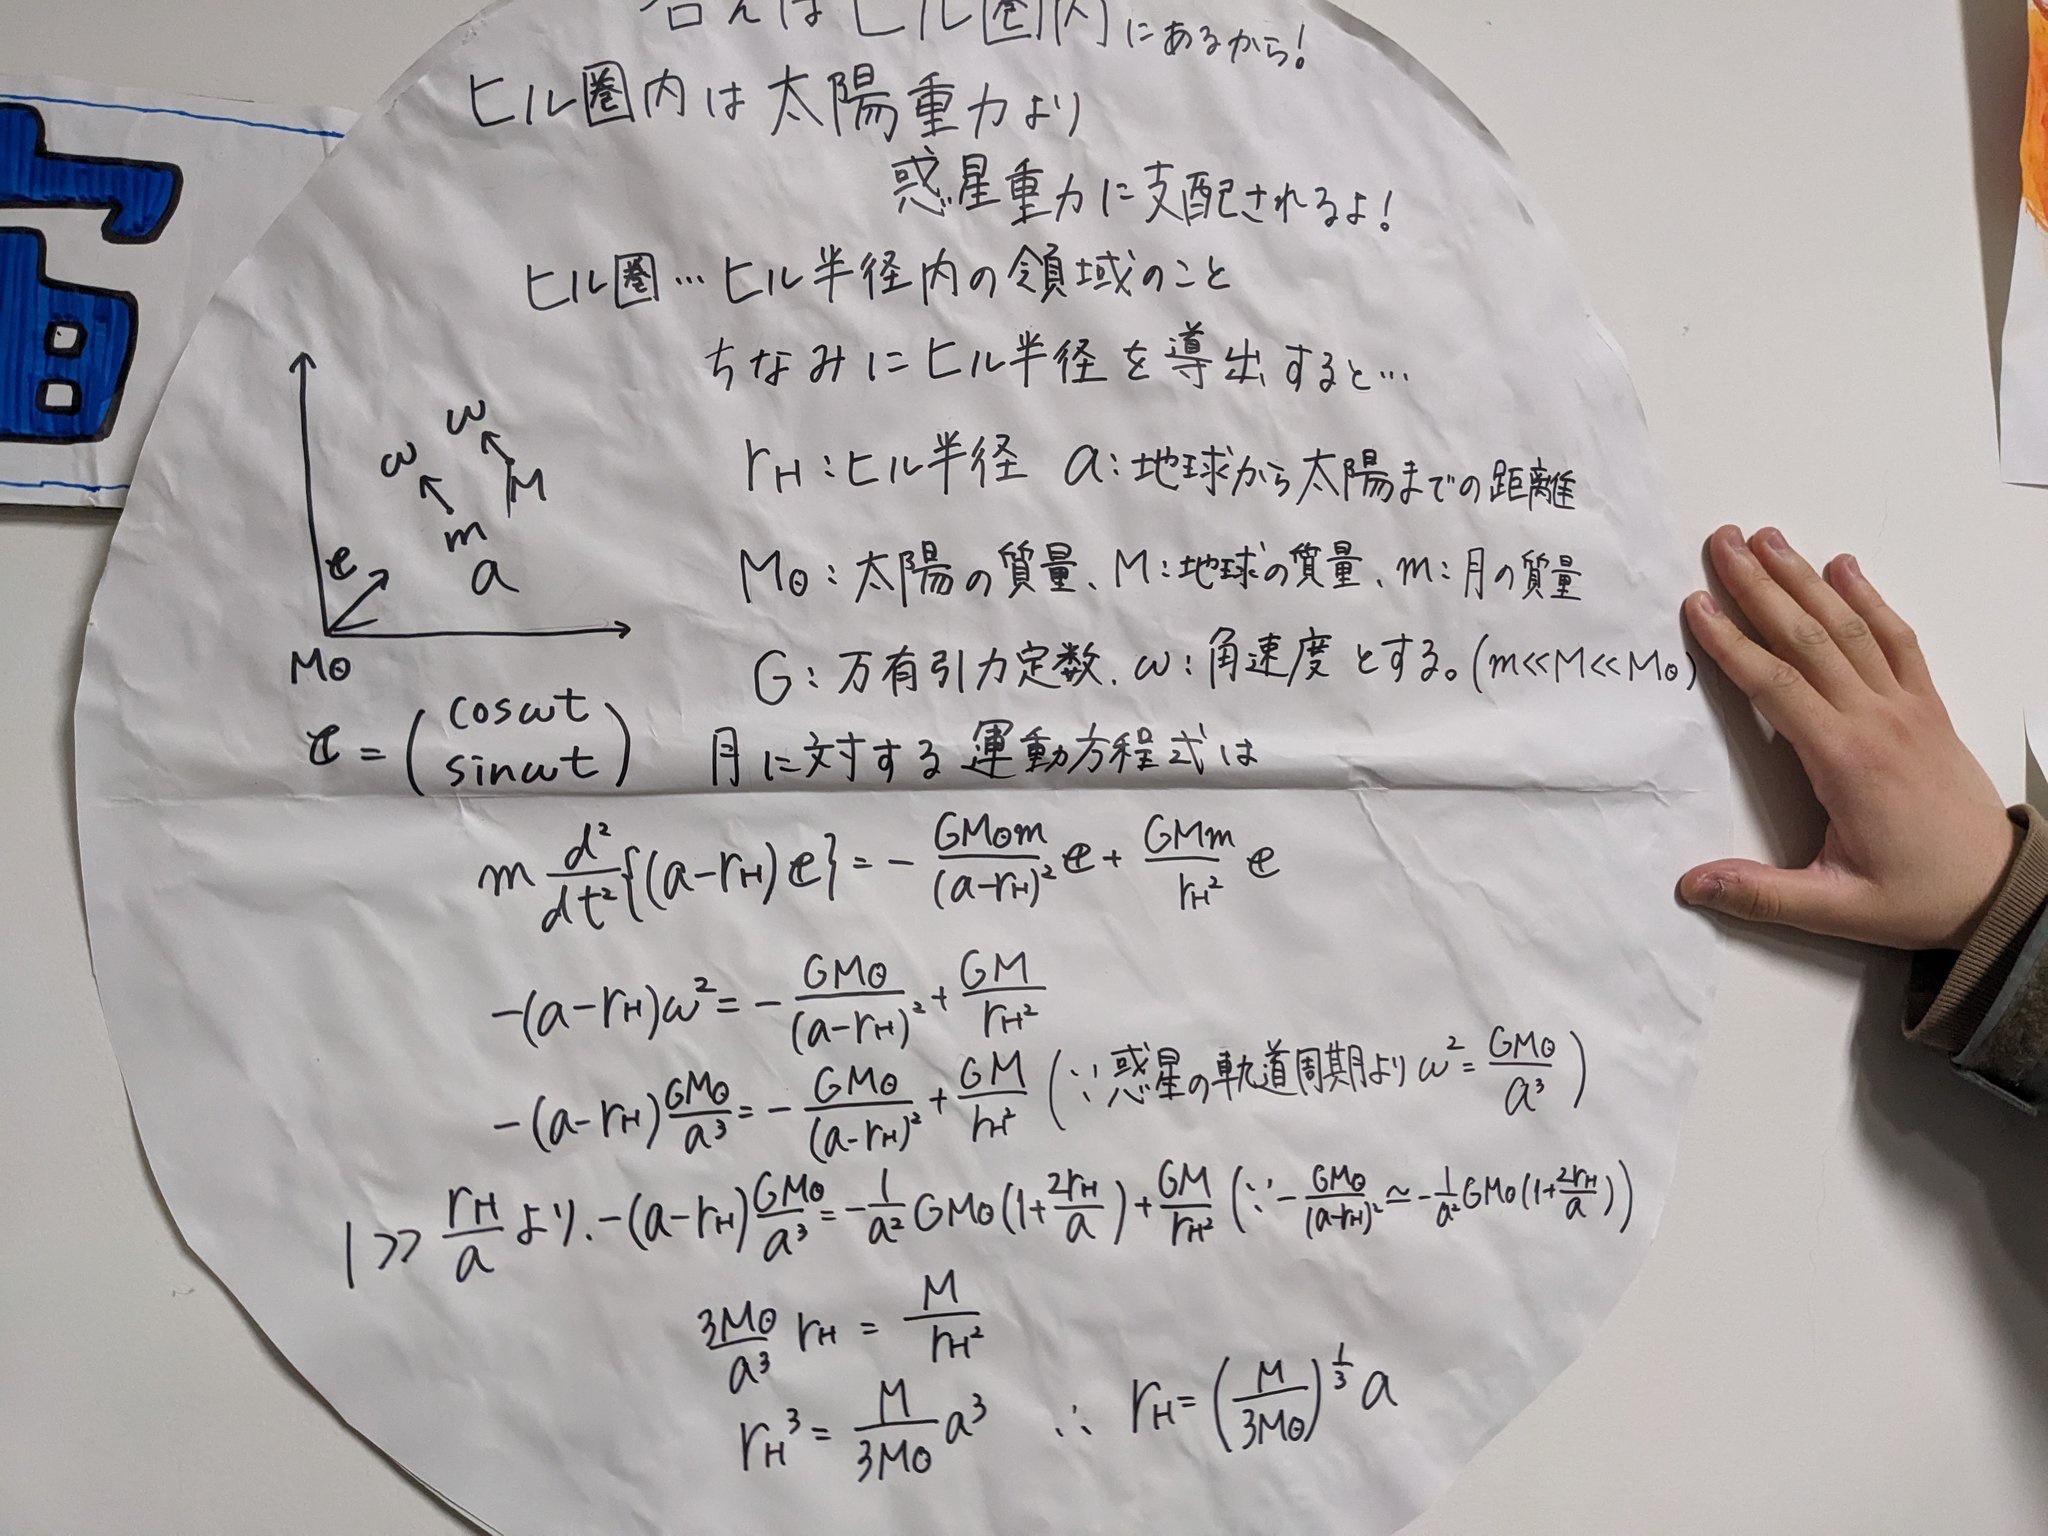 答えはヒル圏内にあるから!
ヒル圏内は太陽重力より
惑星重力に支配されるよ!
ヒル圏…ヒル半径内の領域のこと
ちなみにヒル半径を導出すると…
rH:ヒル半径 a:地球から太陽までの距離
M⊙:太陽の質量、M:地球の質量、m:月の質量
G:万有引力定数、ω:角速度とする。(m≪M≪M⊙)
ω
ω
M
m
a
e
M⊙
e = (cosωt sinωt)
月に対する運動方程式は
m d²/dt² {(a-rH)e} = - GM⊙m/(a-rH)² e + GMm/rH² e
-(a-rH)ω² = - GM⊙/(a-rH)² + GM/rH²
-(a-rH) GM⊙/a³ = - GM⊙/(a-rH)² + GM/rH² (∵惑星の軌道周期より ω² = GM⊙/a³)
1 ≫ rH/a より、-(a-rH) GM⊙/a³ = - 1/a² GM⊙(1+2rH/a) + GM/rH² (∵ - GM⊙/(a-rH)² ≃ - 1/a² GM⊙(1+2rH/a))
3M⊙/a³ rH = M/rH²
rH³ = M/3M⊙ a³ ∴ rH = (M/3M⊙)^1/3 a